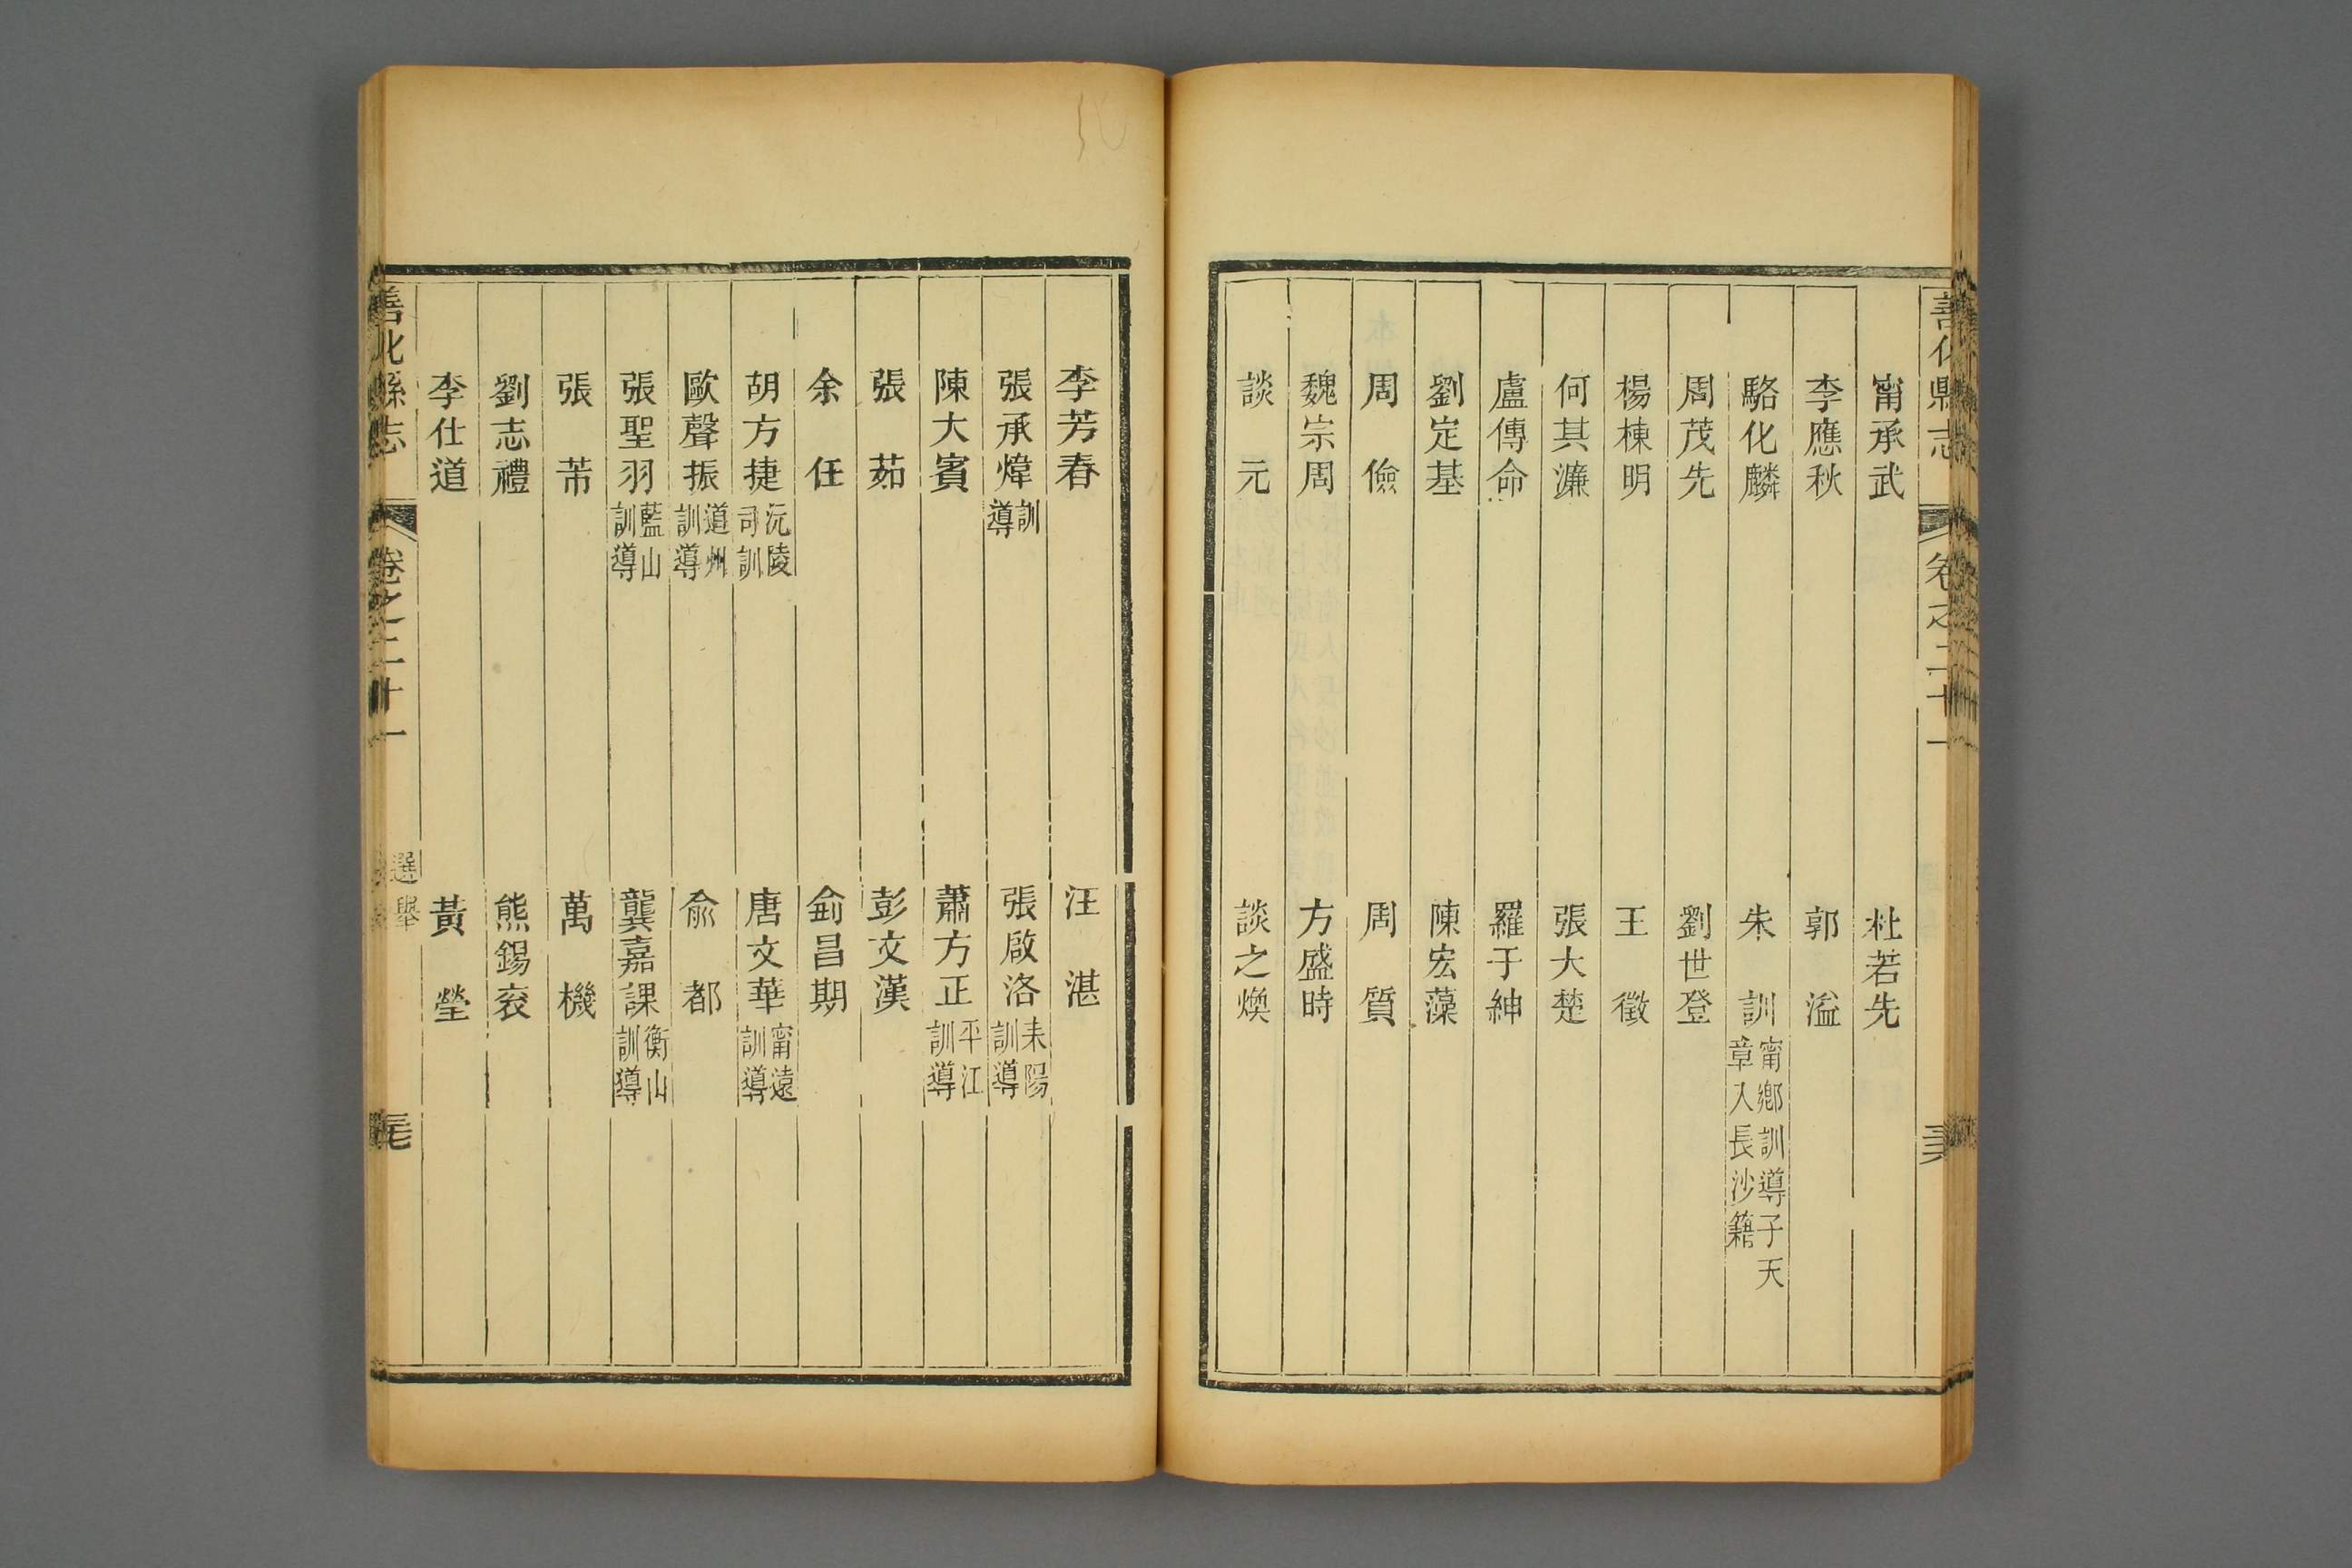 善化縣志 卷之二十一
甯承武 杜若先
李應秋 郭溢
駱化麟 朱訓 甯鄉訓導子天章入長沙籍
周茂先 劉世登
楊棟明 王徵
何其濂 張大楚
盧傳命 羅于紳
劉定基 陳宏藻
周儉 周質
魏宗周 方盛時
談元 談之煥
李芳春 汪湛
張承煒 訓導 張啟洛 耒陽訓導
陳大賓 蕭方正 平江訓導
張茹 彭文漢
余任 俞昌期
胡方捷 沅陵司訓 唐文華 甯遠訓導
歐聲振 道州訓導 俞都
張聖羽 藍山訓導 龔嘉課 衡山訓導
張芾 萬機
劉志禮 熊錫袞
李仕道 黃瑩
善化縣志 卷之二十一 選舉